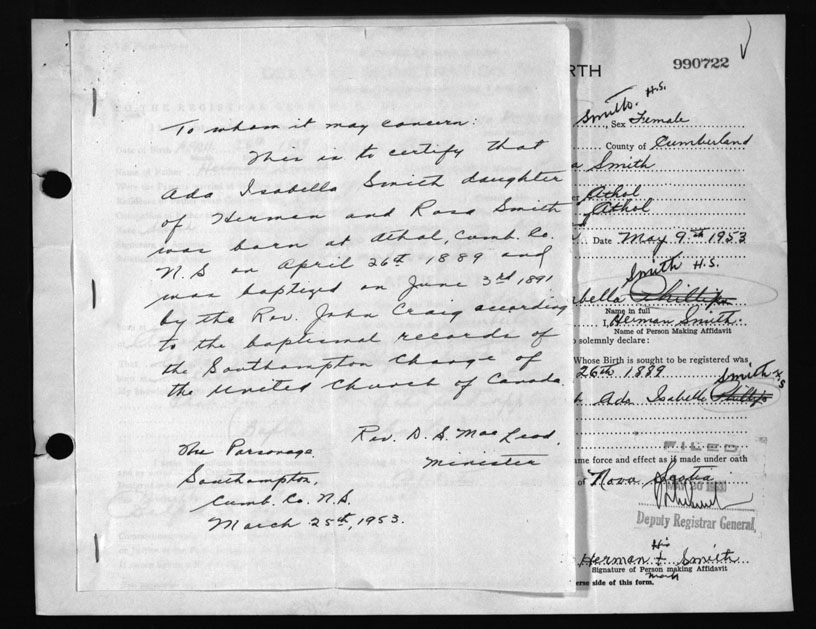 To whom it may concern:
This is to certify that
Ada Isabella Smith daughter
of Herman and Rosa Smith
was born at Athol, Cumb. Co.
N.S on April 26th 1889 and
was baptized on June 3rd 1891
by the Rev. John Craig according
to the baptismal records of
the Southampton Charge of
the United Church of Canada.
Rev. D. S. MacLeod,
Minister
The Parsonage,
Southampton,
Cumb. Co. N.S.
March 25th, 1953.
RTH
990722
Smith H.S.
Sex Female
County of Cumberland
a Smith
Athol
Athol
Date May 9th 1953
Smith H.S.
abella Phillips
Name in full
I, Herman Smith
Name of Person Making Affidavit
solemnly declare:
Whose Birth is sought to be registered was
26th 1889
Smith
Ada Isabella Phillips
FILED
ame force and effect as if made under oath
of Nova Scotia
Deputy Registrar General
His
Herman + Smith
Signature of Person making Affidavit
mark
erse side of this form.